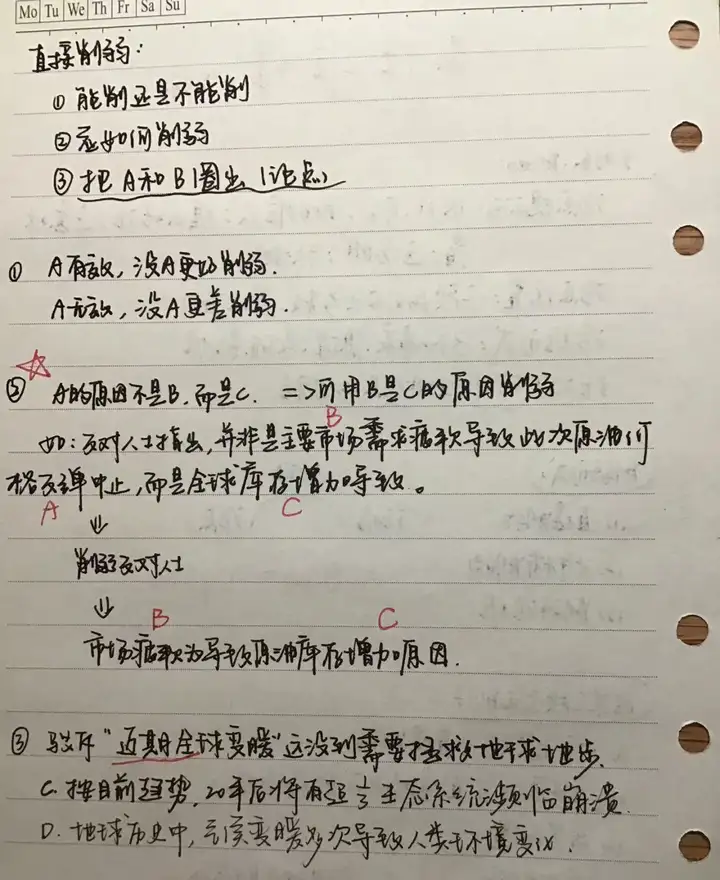 Mo Tu We Th Fr Sa Su
直接削弱:
① 能削还是不能削
② 应如何削弱
③ 把A和B圈出(论点)
① A有效,没A更好削弱.
A无效,没A更差削弱.
② A的原因不是B,而是C. =>可用B是C的原因削弱
B
如:反对人士指出,并非是主要市场需求疲软导致此次原油价
格反弹中止,而是全球库存增加导致。
A C
⇓
削弱反对人士
⇓
B C
市场疲软为导致原油库存增加原因.
③ 驳斥"近期全球变暖"这没到需要拯救地球地步.
C. 按目前趋势,20年后将有近1/3生态系统濒临崩溃.
D. 地球历史中,气候变暖多次导致人类环境变化.